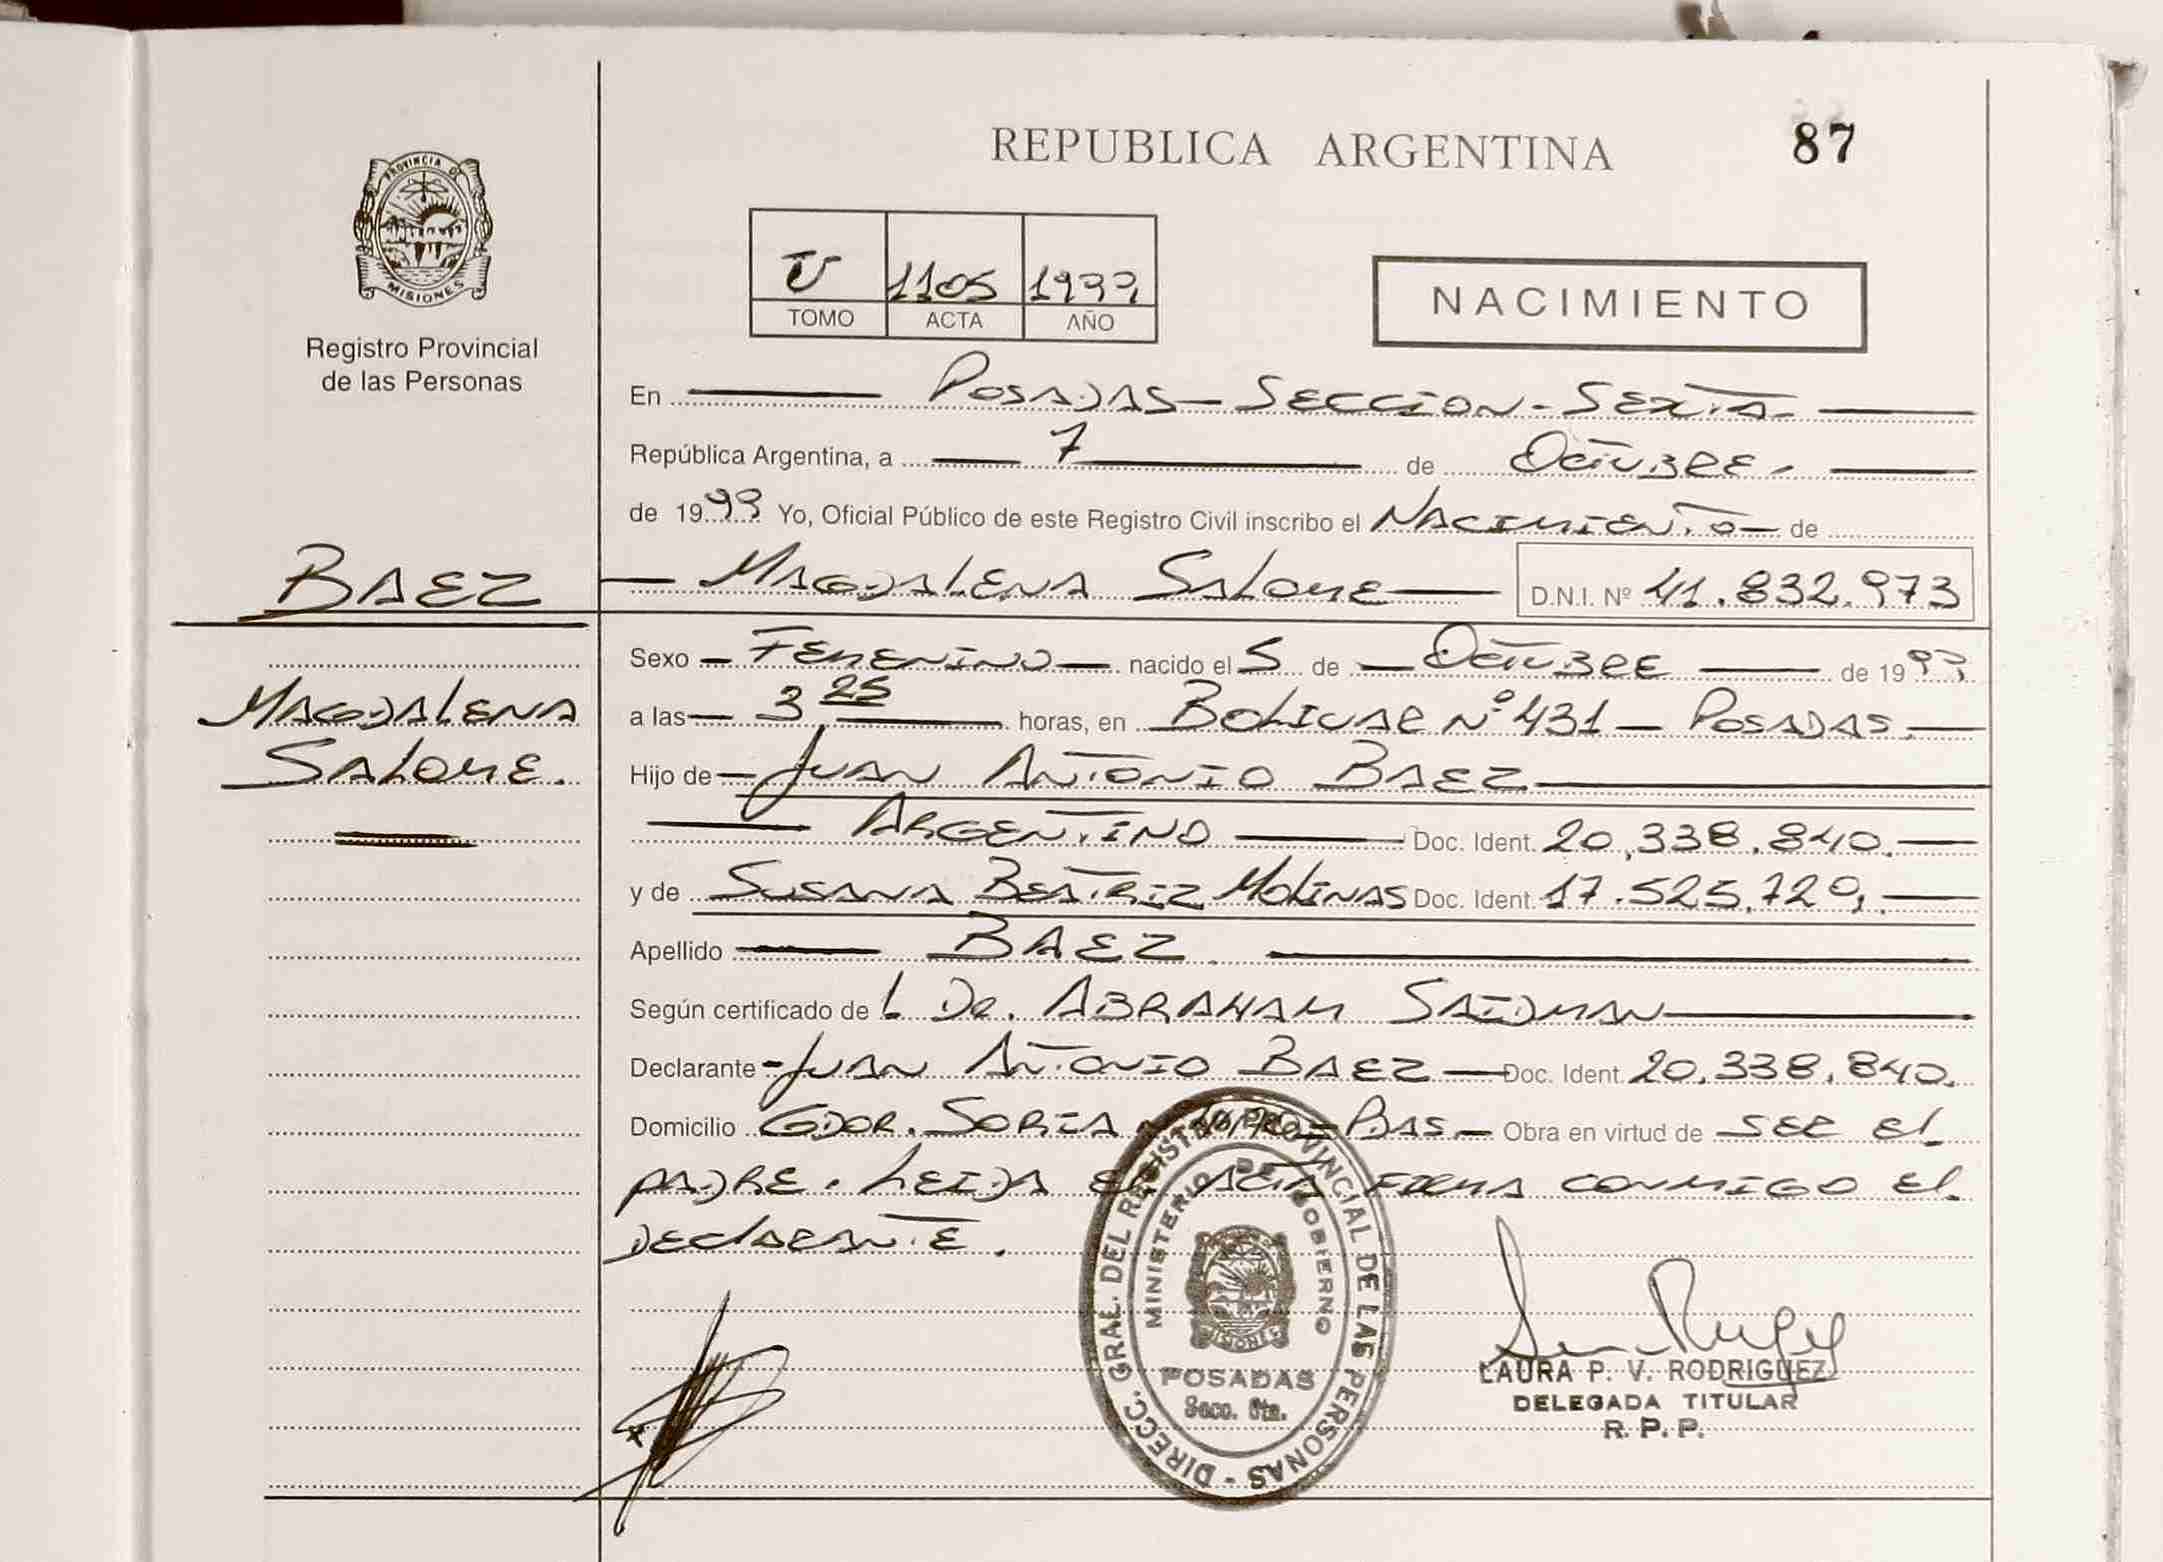 REPUBLICA ARGENTINA
87
PROVINCIA DE
MISIONES
Registro Provincial
de las Personas
U 1105 1999
TOMO ACTA AÑO
NACIMIENTO
En POSADAS - SECCION - SEXTA.
República Argentina, a 7 de OCTUBRE.
de 1999 Yo, Oficial Público de este Registro Civil inscribo el NACIMIENTO de
BAEZ
MAGDALENA SALOME D.N.I. Nº 41.832.973
Sexo FEMENINO nacido el 5 de OCTUBRE de 1999
MAGDALENA
SALOME.
a las 3 25 horas, en BOLIVAR Nº 431 - POSADAS.
Hijo de JUAN ANTONIO BAEZ
ARGENTINO Doc. Ident. 20.338.840.
y de SUSANA BEATRIZ MOLINAS Doc. Ident. 17.525.720.
Apellido BAEZ.
Según certificado de L DR. ABRAHAM SAIDMAN
Declarante JUAN ANTONIO BAEZ Doc. Ident. 20.338.840.
Domicilio GDOR. SORIA PDAS. Obra en virtud de SER El
PADRE. LEIDA El ACTA FIRMA CONMIGO El
DEClARANTE.
DIRECC. GRAL. DEL REGISTRO PROVINCIAL DE LAS PERSONAS -
MINISTERIO DE GOBIERNO
MISIONES
POSADAS
Secc. 6ta.
LAURA P. V. RODRIGUEZ
DELEGADA TITULAR
R. P. P.